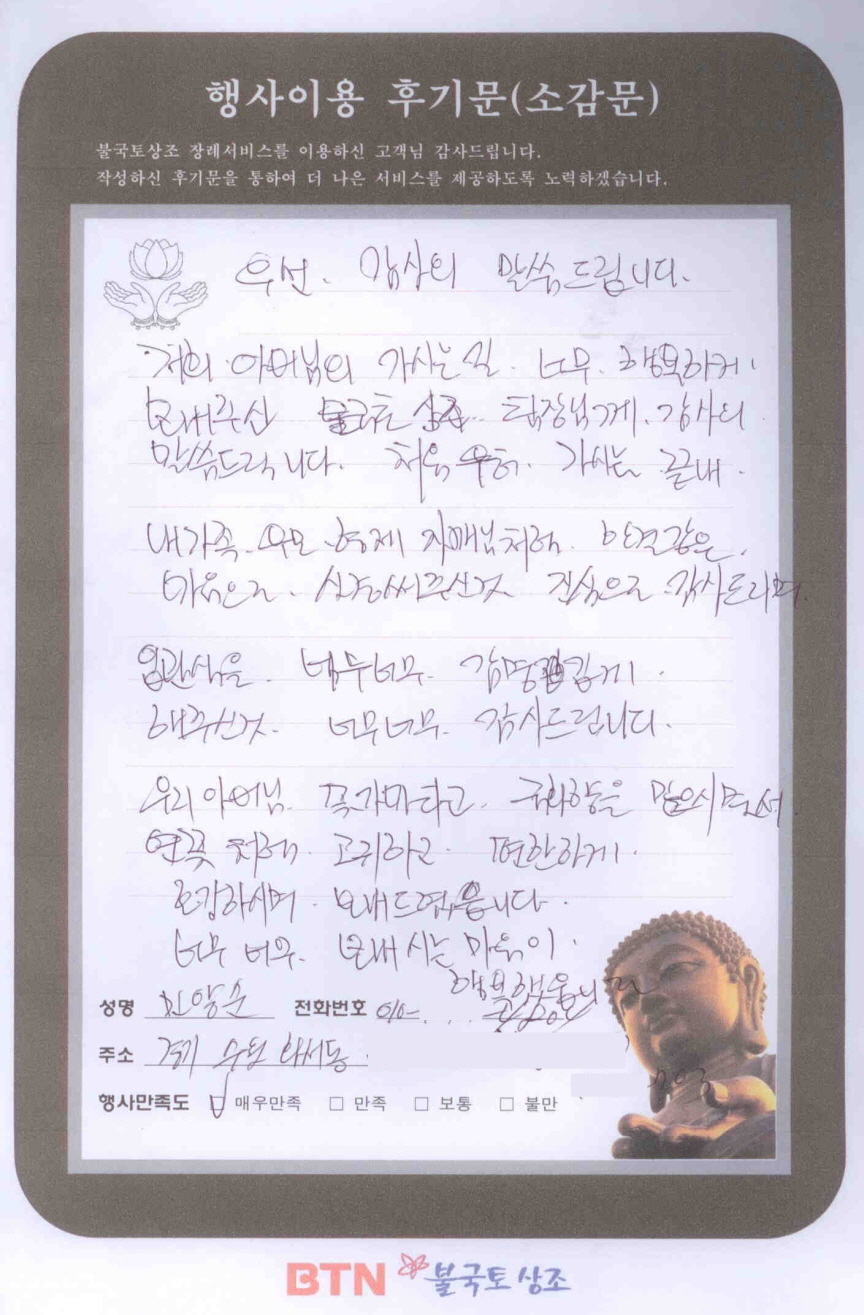 행사이용 후기문(소감문)
불국토상조 장례서비스를 이용하신 고객님 감사드립니다.
작성하신 후기문을 통하여 더 나은 서비스를 제공하도록 노력하겠습니다.
우선. 감사의 말씀드립니다.
저희 어머님의 가시는길. 너무. 행복하게.
보내주신 불국토상조. 팀장님께. 감사의
말씀드립니다. 처음 가시는 끝내.
내가족. 부모 형제 자매님처럼. 한결같은.
마음으로. 신경써주신것 진심으로 감사드리며.
입관식을. 너무너무. 감명깊게.
해주신것. 너무너무. 감사드립니다.
우리어머님. 꽃가마타고. 국화향을 맡으시면서
연꽃처럼. 고귀하고. 편안하게.
보내드렸습니다.
너무 너무. 보내시는 마음이.
행복했습니다
성명 전화번호 010-
주소 경기 수원 화서동.
행사만족도 매우만족 만족 보통 불만
BTN 불국토상조